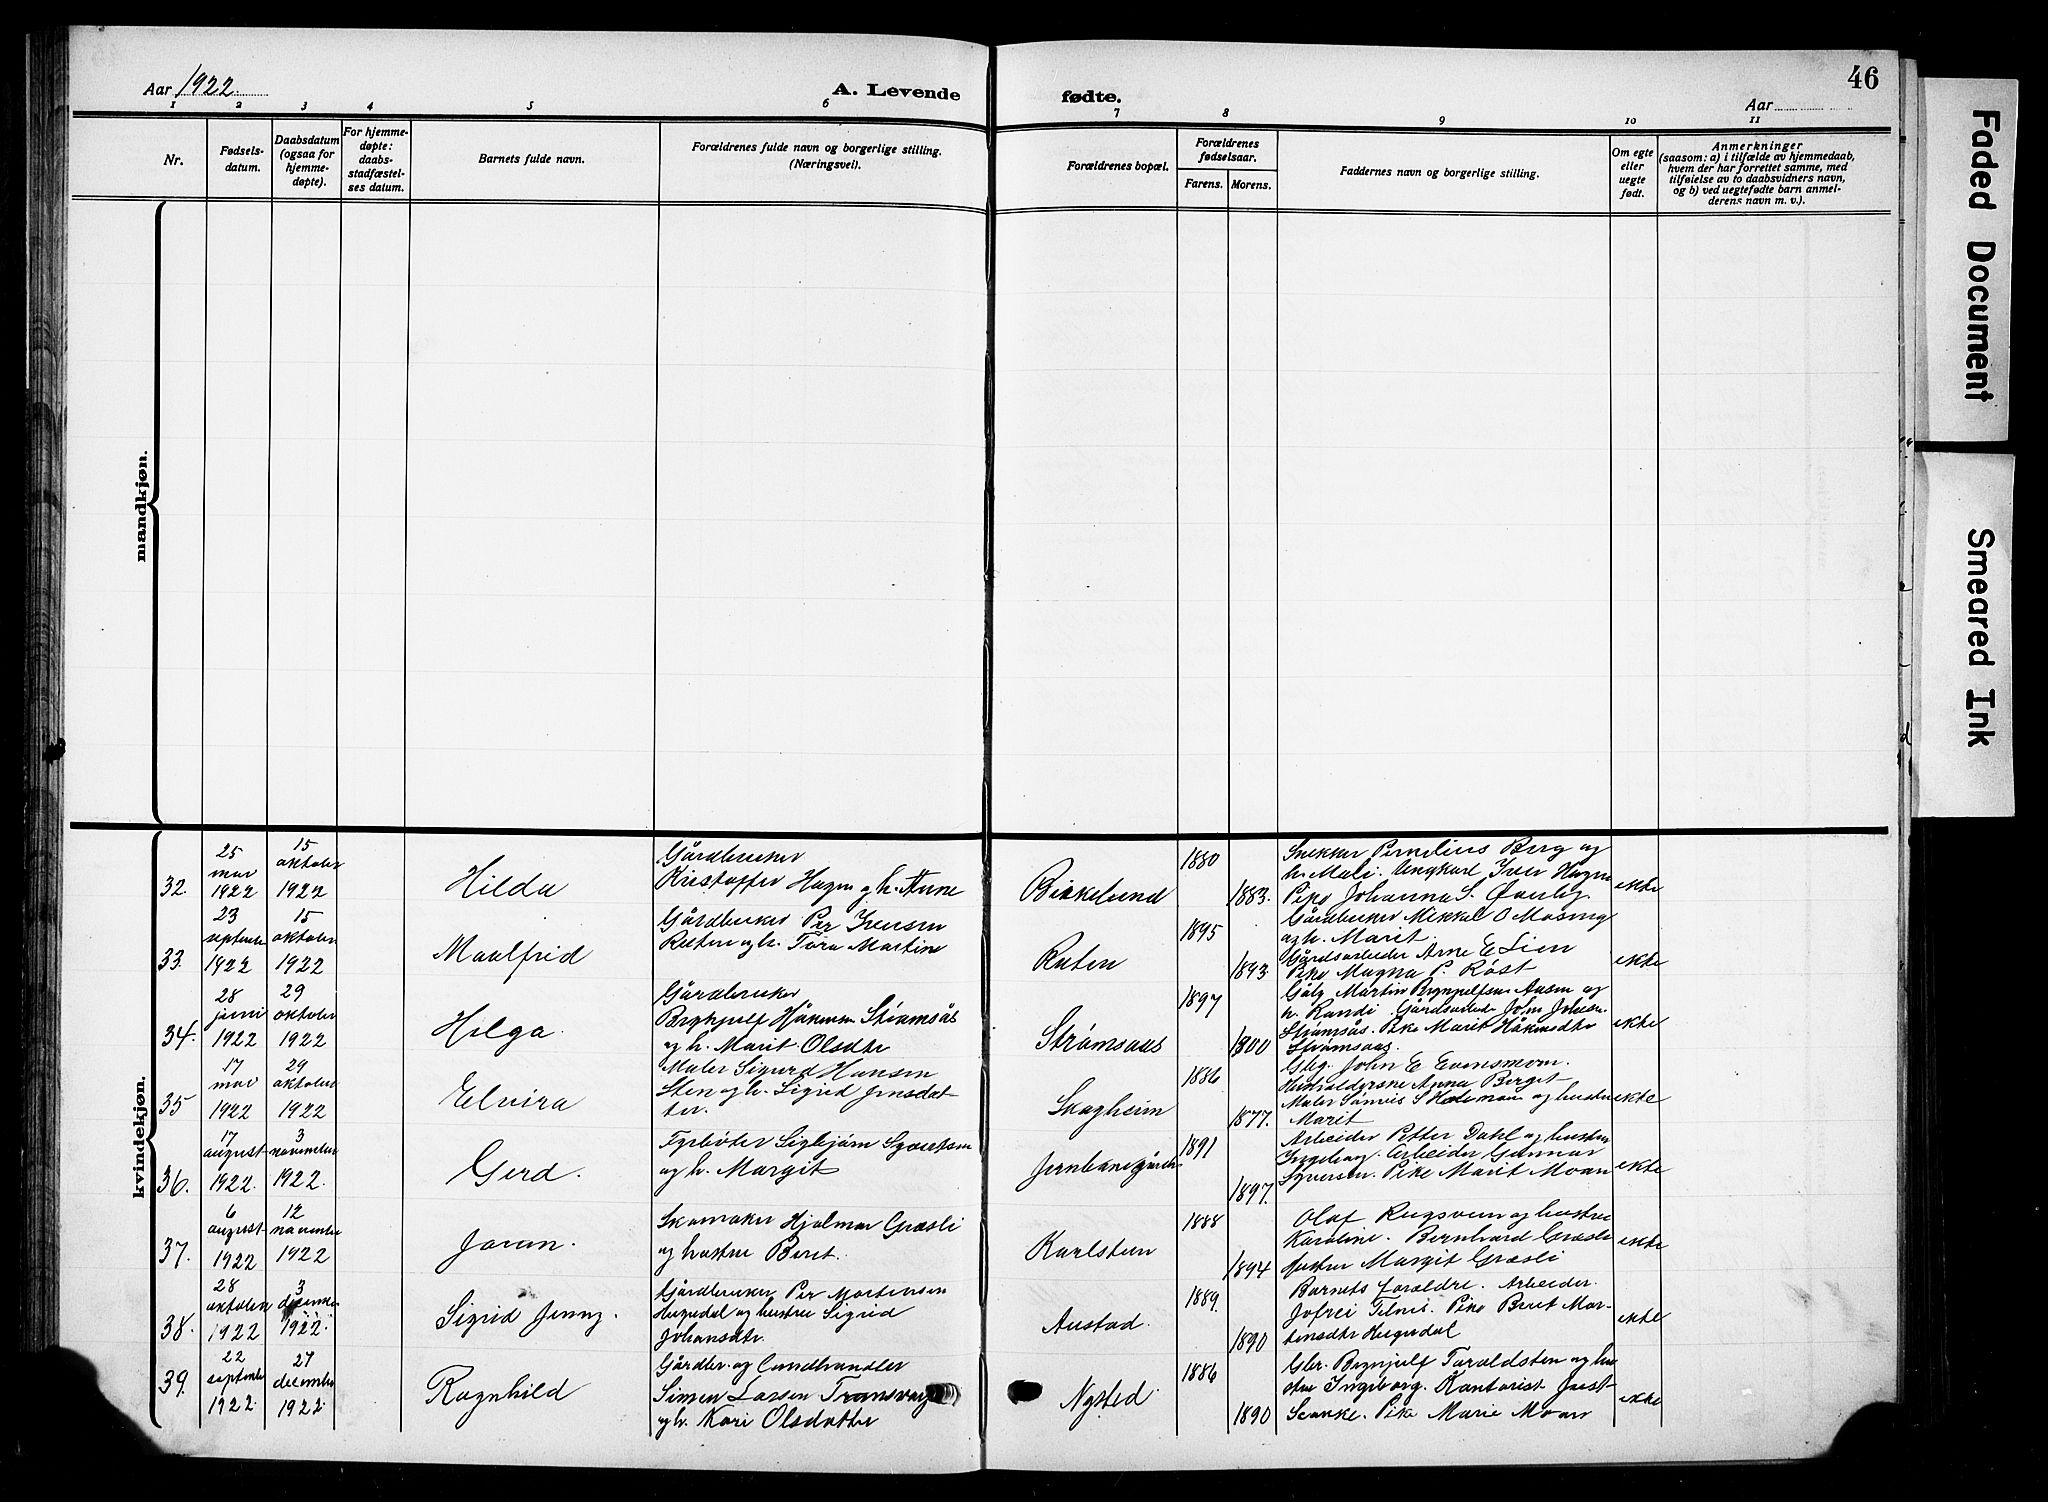 Aar 1922.
A. Levende
fødte.
Aar
46
1
2
3
4
5
6
7
8
9
10
11
Nr.
Fødsels-
datum.
Daabsdatum
(ogsaa for
hjemme-
døpte).
For hjemme-
døpte:
daabs-
stadfæstel-
ses datum.
Barnets fulde navn.
Forældrenes fulde navn og borgerlige stilling.
(Næringsvei).
Forældrenes bopæl.
Forældrenes
fødselsaar.
Farens.
Morens.
Faddernes navn og borgerlige stilling.
Om egte
eller
uegte
født.
Anmerkninger
(saasom: a) i tilfælde av hjemmedaab,
hvem der har forrettet samme, med
tilføielse av to daabsvidners navn,
og b) ved uegtefødte barn anmel-
derens navn m. v.).
mandkjøn.
kvindekjøn.
32.
25
mai
1922
15
oktober
1922
Hilda
Gårdbruker
Kristoffer Hagen og h. Anne
Birkelund
1880
1883.
Snekker Pernelius Berg og
h. Mali. Ungkarl Iver Hagen
Pike Johanna S. Øverby.
ekte
33.
23
september
1922
15
oktober
1922
Maalfrid
Gårdbruker Per Iversen
Rosten og h. Tora Martine
Ruten
1895
1893
Gårdbruker Mikkel O Mosing
og h. Marit.
Gårdsarbeider Arne E Lien
Pike Magna P. Røst
ekte
34.
28
juni
1922
29
oktober
1922
Helga.
Gårdbruker
Brynjulf Håkensen Strømsås
og h. Marit Olsdtr
Strømsaas
1897
1900
h. Randi. Gårdsarbeider John Johnsen
Strømsås. Pike Marit Håkensdtr
Strømsaas.
ekte
35
17
mai
1922
29
oktober
1922
Elvira
Maler Sigurd Hansen
Sten og h. Sigrid Jensdat-
ter.
Skogheim
1886
1877.
Gbg. John E Evensmom.
Anna Berget
Marit
ekte
36.
17
august
1922.
3
november
1922.
Gerd.
Fyrbøter Sigbjørn Syvertsen
og h. Margit
Jernbanegården
1891
1897.
Arbeider Petter Dahl og hustru
Ingeborg. Arbeider Gunnar
Syversen. Pike Marit Moan
ekte
37.
6
august
1922
12
november
1922
Joran.
Skomaker Hjalmar Græsli
og hustru Beret.
Karlsteen
1888
1894
Olaf Rugsveen og hustru
Karoline. Bernhard Græsli
hustru Margit Græsli
ekte
38.
28
oktober
1922
3
december
1922.
Sigrid Jenny.
Gårdbruker Per Mortensen
Hegsedal og hustru Sigrid
Johansdtr.
Austad.
1889.
1890
Barnets foreldre. Arbeider
Jofrei Tilnes. Pike Beret Mor-
tensdtr Hegsedal
ekte
39.
22
september
1922.
27
december
1922.
Ragnhild
Gårdbr. og Landhandler
Simen Larsen
og h. Kari Olsdatter
Nysted.
1886
1890
Gbr. Brynjulf Taraldsten og hu-
stru Ingeborg. Kontorist Just
Scanke. Pike Marie Moan
ekte
Faded Document
Smeared Ink